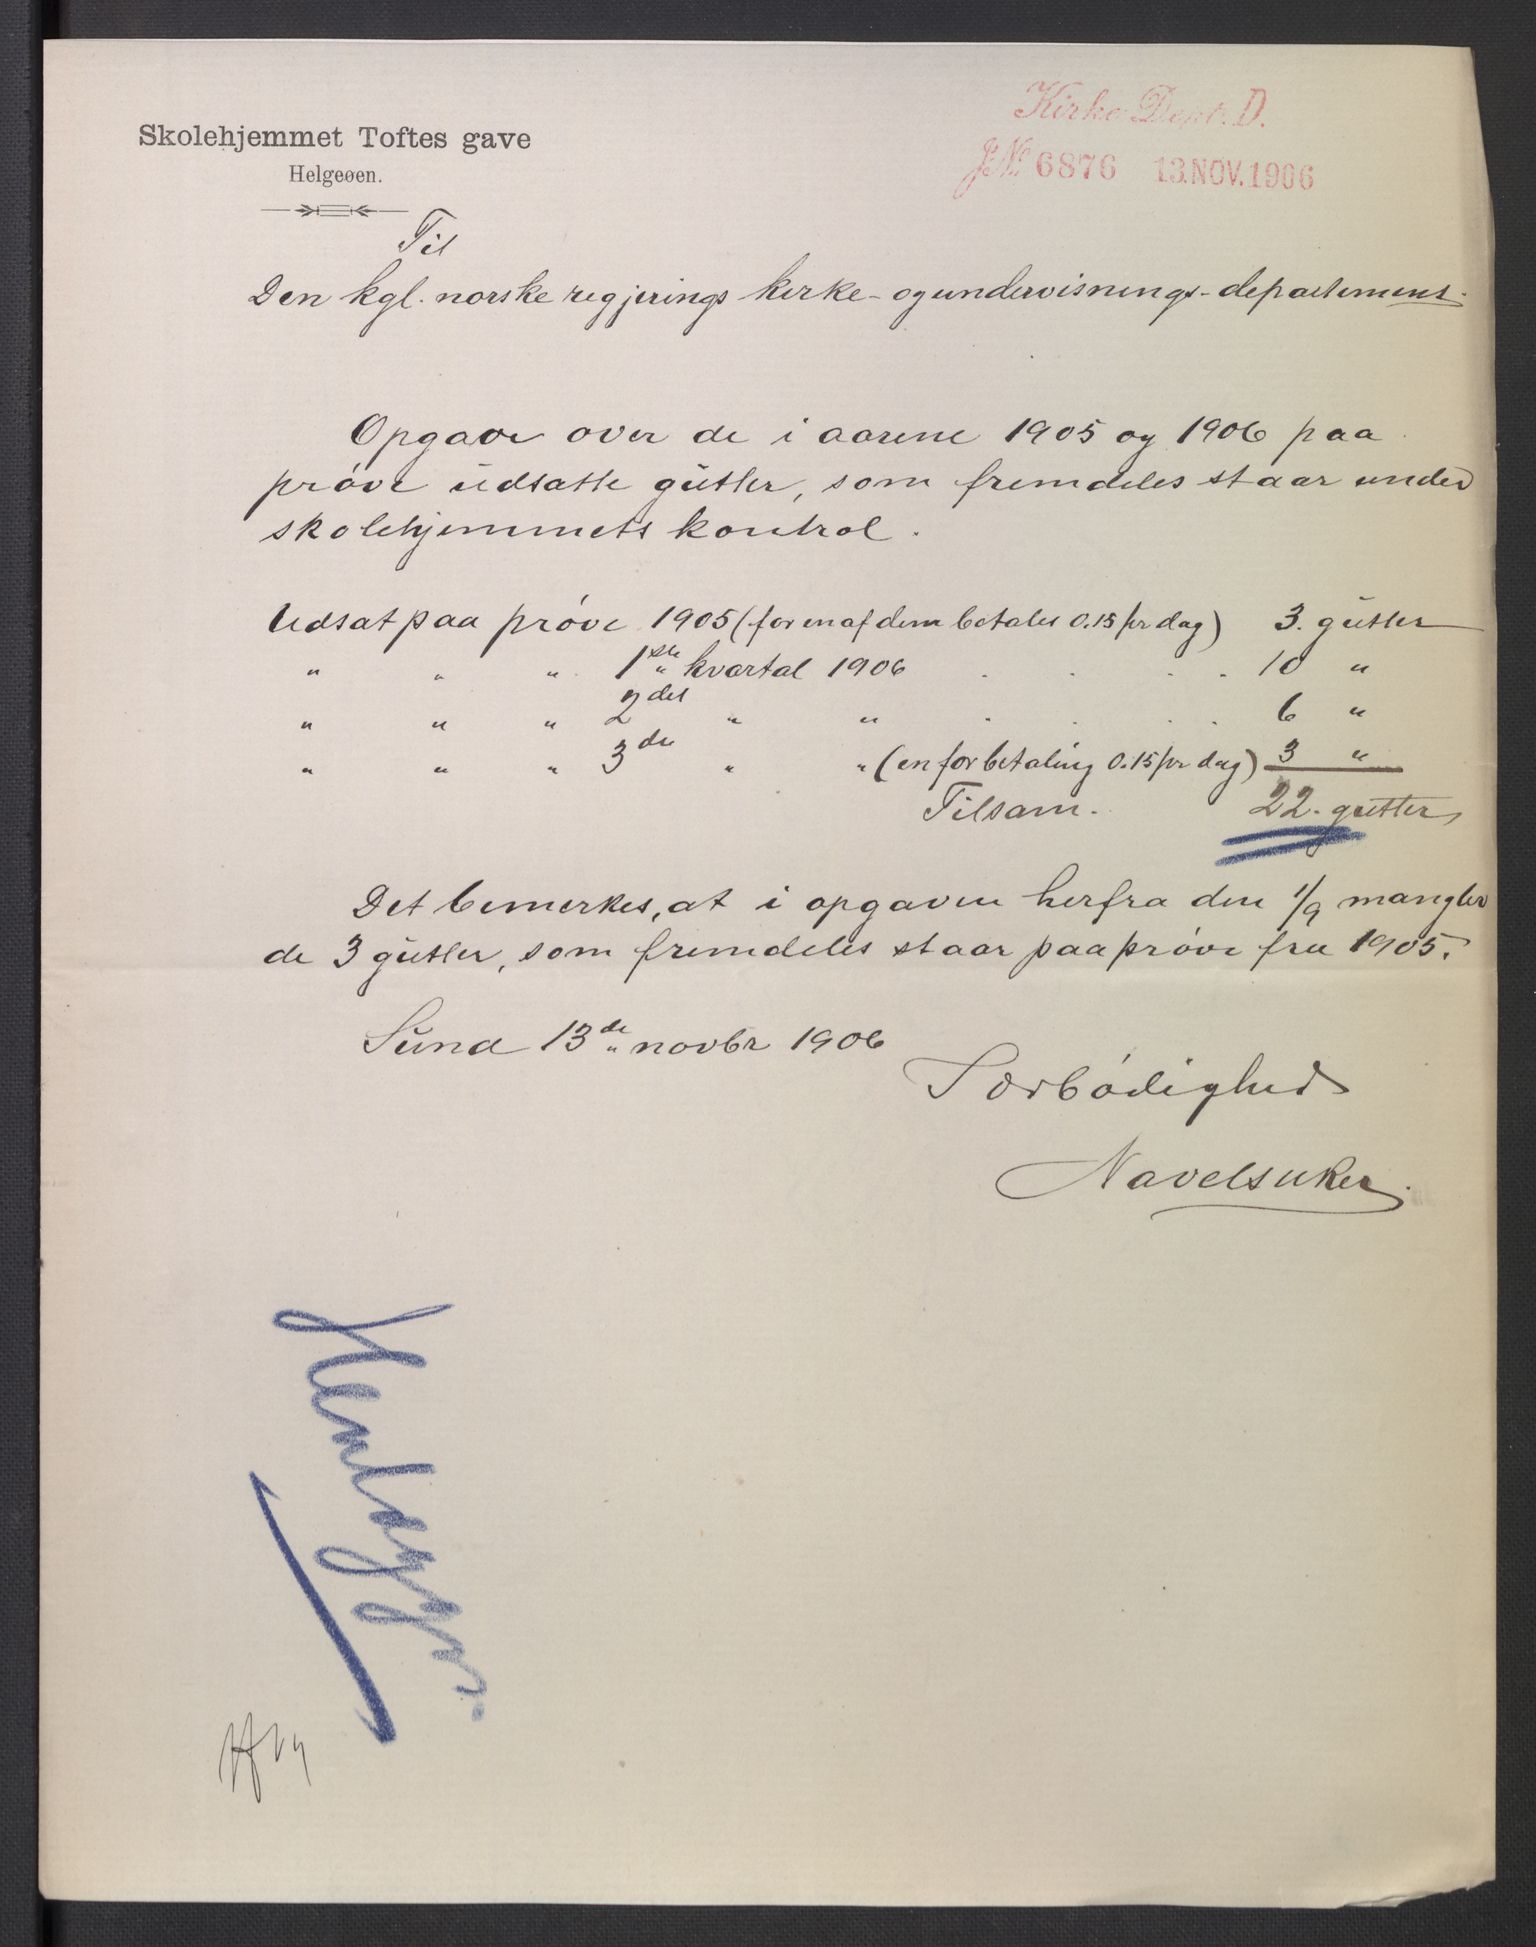 Skolehjemmet Toftes gave
Helgeøen.
Kirke Dept. D.
J. No. 6876 13. NOV. 1906
Til
Den kgl. norske regjerings kirke- og undervisnings-departement.
Opgave over de i aarene 1905 og 1906 paa
prøve udsatte gutter, som fremdeles staar under
skolehjemmets kontrol.
Udsat paa prøve 1905 (for en af dem betales 0.15 pr dag) 3. gutter
" " " 1ste kvartal 1906 . . . . 10 "
" " " 2det " " . . . . 6 "
" " " 3die " " (en for betaling 0.15 pr dag) 3 "
Tilsam. 22. gutter
Det bemerkes, at i opgaven herfra den 1/9 mangler
de 3 gutter, som fremdeles staar paa prøve fra 1905.
Sund 13de novbr 1906
Ærbødighed
Navelsaker.
Henlegges.